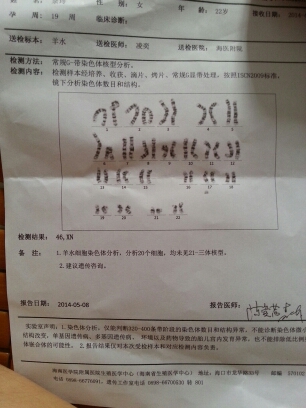 孕 周：19 周 临床诊断： 性 别：女 年 龄：22岁 报告日期：2014
送检标本：羊水 送检医师：凌奕 送检医院：海医附院
检测方法：常规G-带染色体核型分析。
检测内容：检测样本经培养、收获、滴片、烤片、常规G显带处理，依照ISCN2009标准，
镜下分析染色体数目和结构。
1 2 3 4 5
6 7 8 9 10 11 12
13 14 15 16 17 18
19 20 21 22
检测结果：46,XN
备 注：1.羊水细胞染色体分析，分析20个细胞，均未见21-三体核型。
2.建议遗传咨询。
报告日期：2014-05-08 报告医师：
实验室声明：1.染色体分析，仅能判断320-400条带阶段的染色体数目和结构异常，不能诊断染色体微小
结构改变，单基因遗传病、多基因遗传病、环境以及药物导致的胎儿宫内发育异常，也不能排除低比例
体嵌合体的可能性。2.报告结果仅对本次受检样本和对应检测内容负责。
海南医学院附属医院生殖医学中心（海南省生殖医学中心） 地址：海口市龙华路31号 邮编：570102
电话 0898-66776091，遗传工作室电话 0898-66706533 转 801